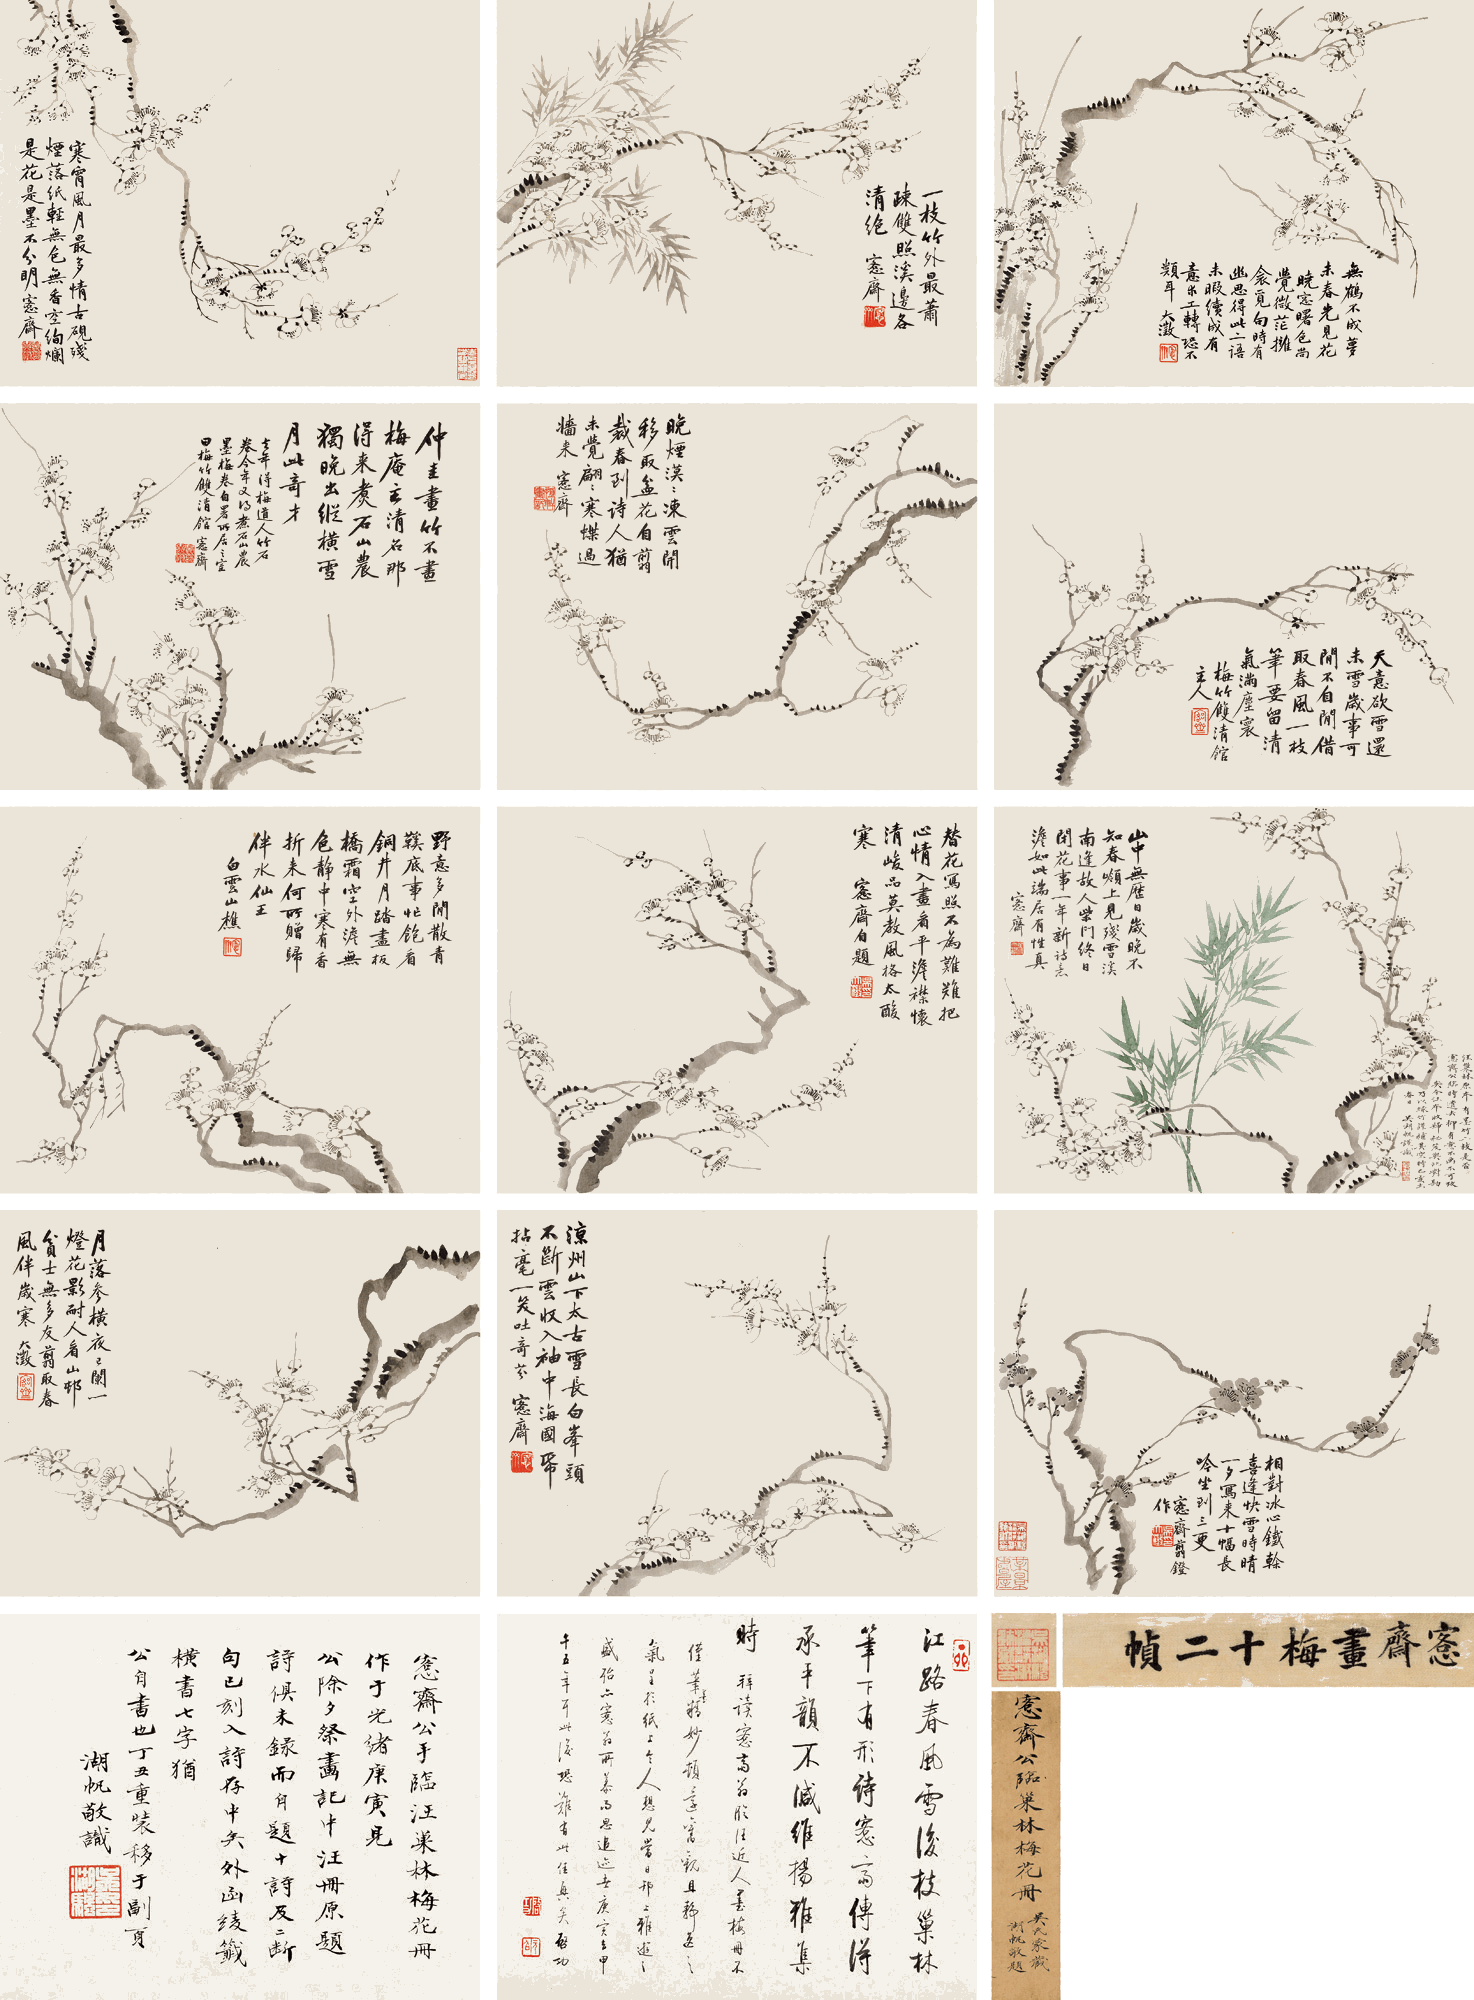 寒宵風月最多情古硯殘
煙落紙輕無色無香空絢爛
是花是墨不分明 愙齋
一枝竹外最蕭
疎雙照溪邊各
清絶 愙齋
無鶴不成夢
未春先見花
曉窓曙色尚
覺微茫擁
衾覓句時有
幽思得此二語
未暇續成有
意求工轉恐不
類耳 大澂
仲圭畫竹不畫
梅庵主清名那
得来煑石山農
獨晚出縱橫雪
月此奇才
去年得梅道人竹石
卷今年又得煮石山農
墨梅卷自署所居之室
曰梅竹雙清館 愙齋
晚煙漠漠凍雲開
移取盆花自翦
裁春到詩人猶
未覺翩翩寒蝶過
牆来 愙齋
天意欲雪還
未雪歲事可
閒不自閒借
取春風一枝
筆要留清
氣滿塵寰
梅竹雙清館
主人
野意多閒散青
鞵底事忙飽看
銅井月踏盡板
橋霜空外澹無
色靜中寒有香
折来何所贈歸
伴水仙王
白雲山樵
替花寫照不為難難把
心情入畫看平澹襟懷
清峻品莫教風格太酸
寒 愙齋自題
山中無歷日歲晚不
知春嶺上見殘雪溪
南逢故人柴門終日
閉花事一年新詩意
澹如此端居有性真
愙齋
月落參橫夜已闌一
燈花影耐人看山邨
貧士無多友翦取春
風伴歲寒 大澂
涼州山下太古雪長白峯頭
不斷雲收入袖中海國帶
拈毫一笑吐奇芬 愙齋
相對冰心鐵榦
喜逢快雪時晴
一夕寫来十幅長
吟坐到三更
愙齋翦鐙
作
愙齋公手臨汪巢林梅花冊
作于光緒庚寅見
公除夕祭畫記中汪冊原題
詩俱未録而自題十詩及二斷
句已刻入詩存中矣外函綾籤
橫書七字猶
公自書也丁丑重裝移于副頁
湖帆敬識
江路春風雪後枝巢林
筆下有形詩愙齋傳得
承平韻不減維揚雅集
時
拜讀愙齋翁臨汪近人墨梅冊不
僅筆精妙頓還舊觀且靜逸之
氣呈於紙上令人想見當日邗上雅遊之
盛殆亦愙翁所慕而思追迹者庚寅至甲
啓功
愙齋畫梅十二幀
愙齋公臨巢林梅花冊
吳氏家藏
湖帆敬題